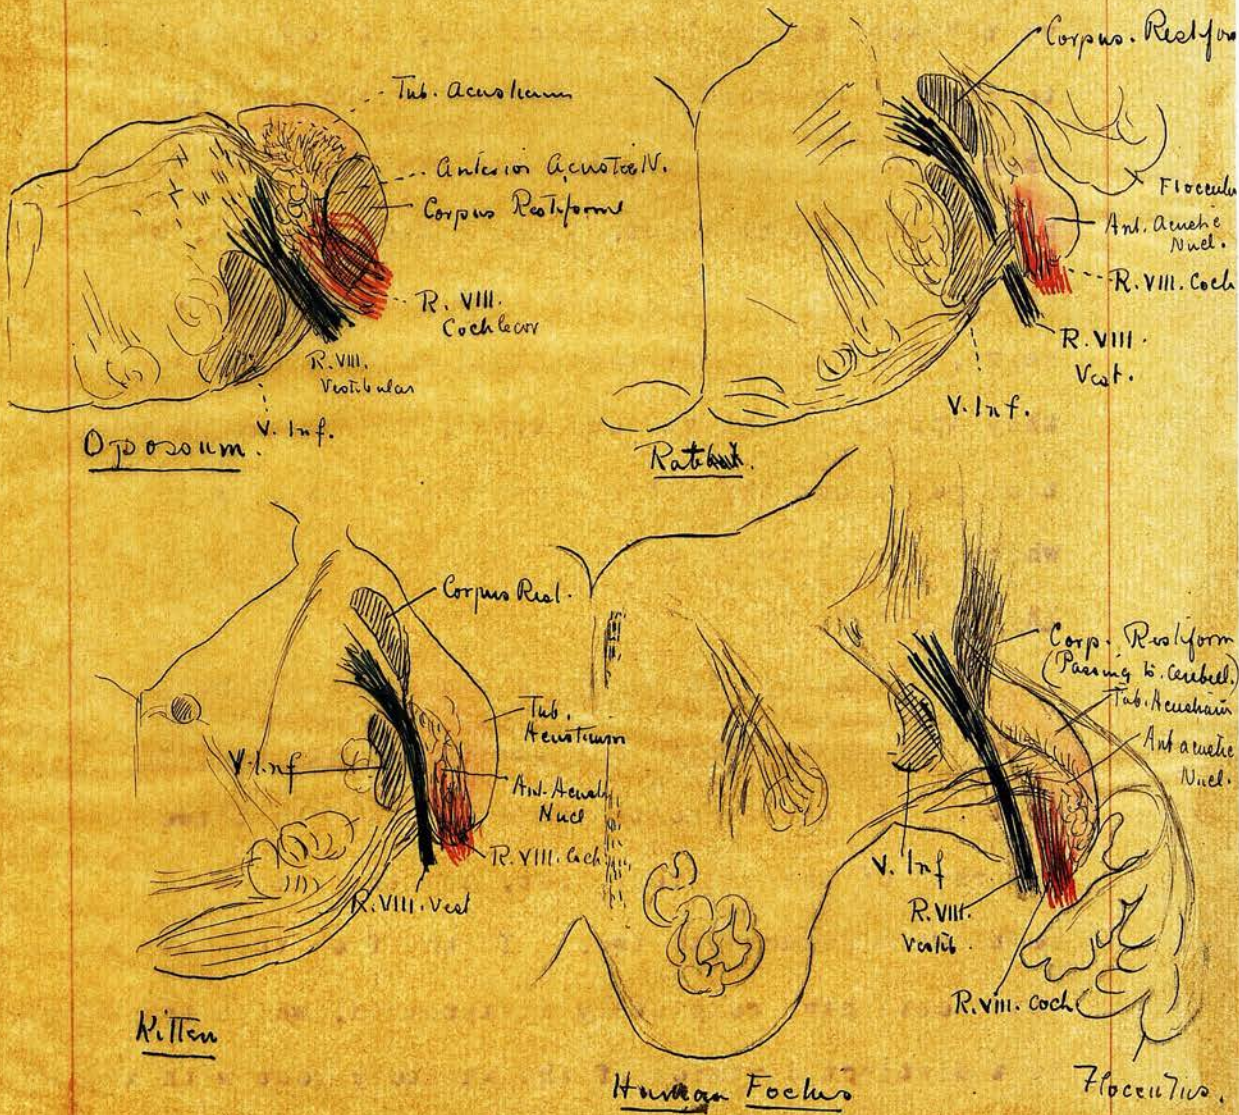 Tub. Acusticum
Anterior Acustic N.
Corpus Restiforme
R. VIII.
Cochlear
R. VIII.
Vestibular
V. Inf.
Oposoum.
Corpus. Restifor
Flocculu
Ant. Acustic
Nucl.
R. VIII. Coch
R. VIII.
Vest.
V. Inf.
Corpus Rest.
Tub.
Acusticum
V. Inf
Ant. Acustic
Nucl
R. VIII. Coch
R. VIII. Vest
Kitten
Corp. Restiform
(Passing to Cerebell.)
Tub. Acusticum
Ant acustic
Nucl.
V. Inf
R. VIII.
Vestib.
R. VIII. Coch
Human Foetus
Flocculus.